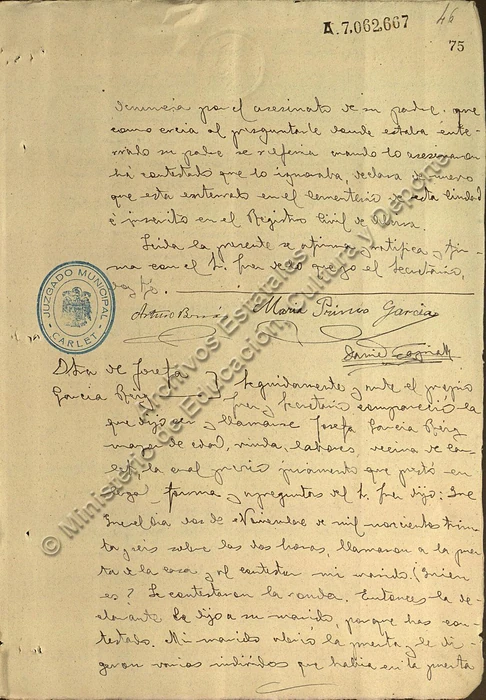 A.7,062,667
46
75
denuncia por el asesinato de su padre, que
como creia al preguntarle donde estaba ente-
rrado su padre se referia cuando lo asesinaron
ha contestado que lo ignoraba, declara de nuevo
que esta enterrado en el cementerio de esta Ciudad
é inscrito en el Registro Civil de
Leida la presente se afirma y ratifica y fir-
ma con el Sr. Juez de lo que yo el Secretario,
doy fé.
JUZGADO MUNICIPAL
CARLET
Arturo
Maria Primo Garcia
Otra de Josefa
Garcia Reig
Seguidamente y ante el propio
Juez y Secretario compareció la
que dijo ser y llamarse Josefa Garcia Reig
mayor de edad, viuda, labores, vecina de Car-
let, la cual previo juramento que prestó en
legal forma y a preguntas del Sr. Juez dijo: Que
el dia dos de Noviembre de mil novecientos trein-
ta y seis sobre las dos horas, llamaron a la puer-
ta de la casa y al contestar mi marido ¿Quien
es? Le contestaron la ronda. Entonces la de-
clarante le dijo a su marido, porque has con-
testado. Mi marido abrió la puerta y le di-
jeron varios individuos que habia en la puerta
© Ministerio de Educación, Cultura y Deporte
Archivos Estatales